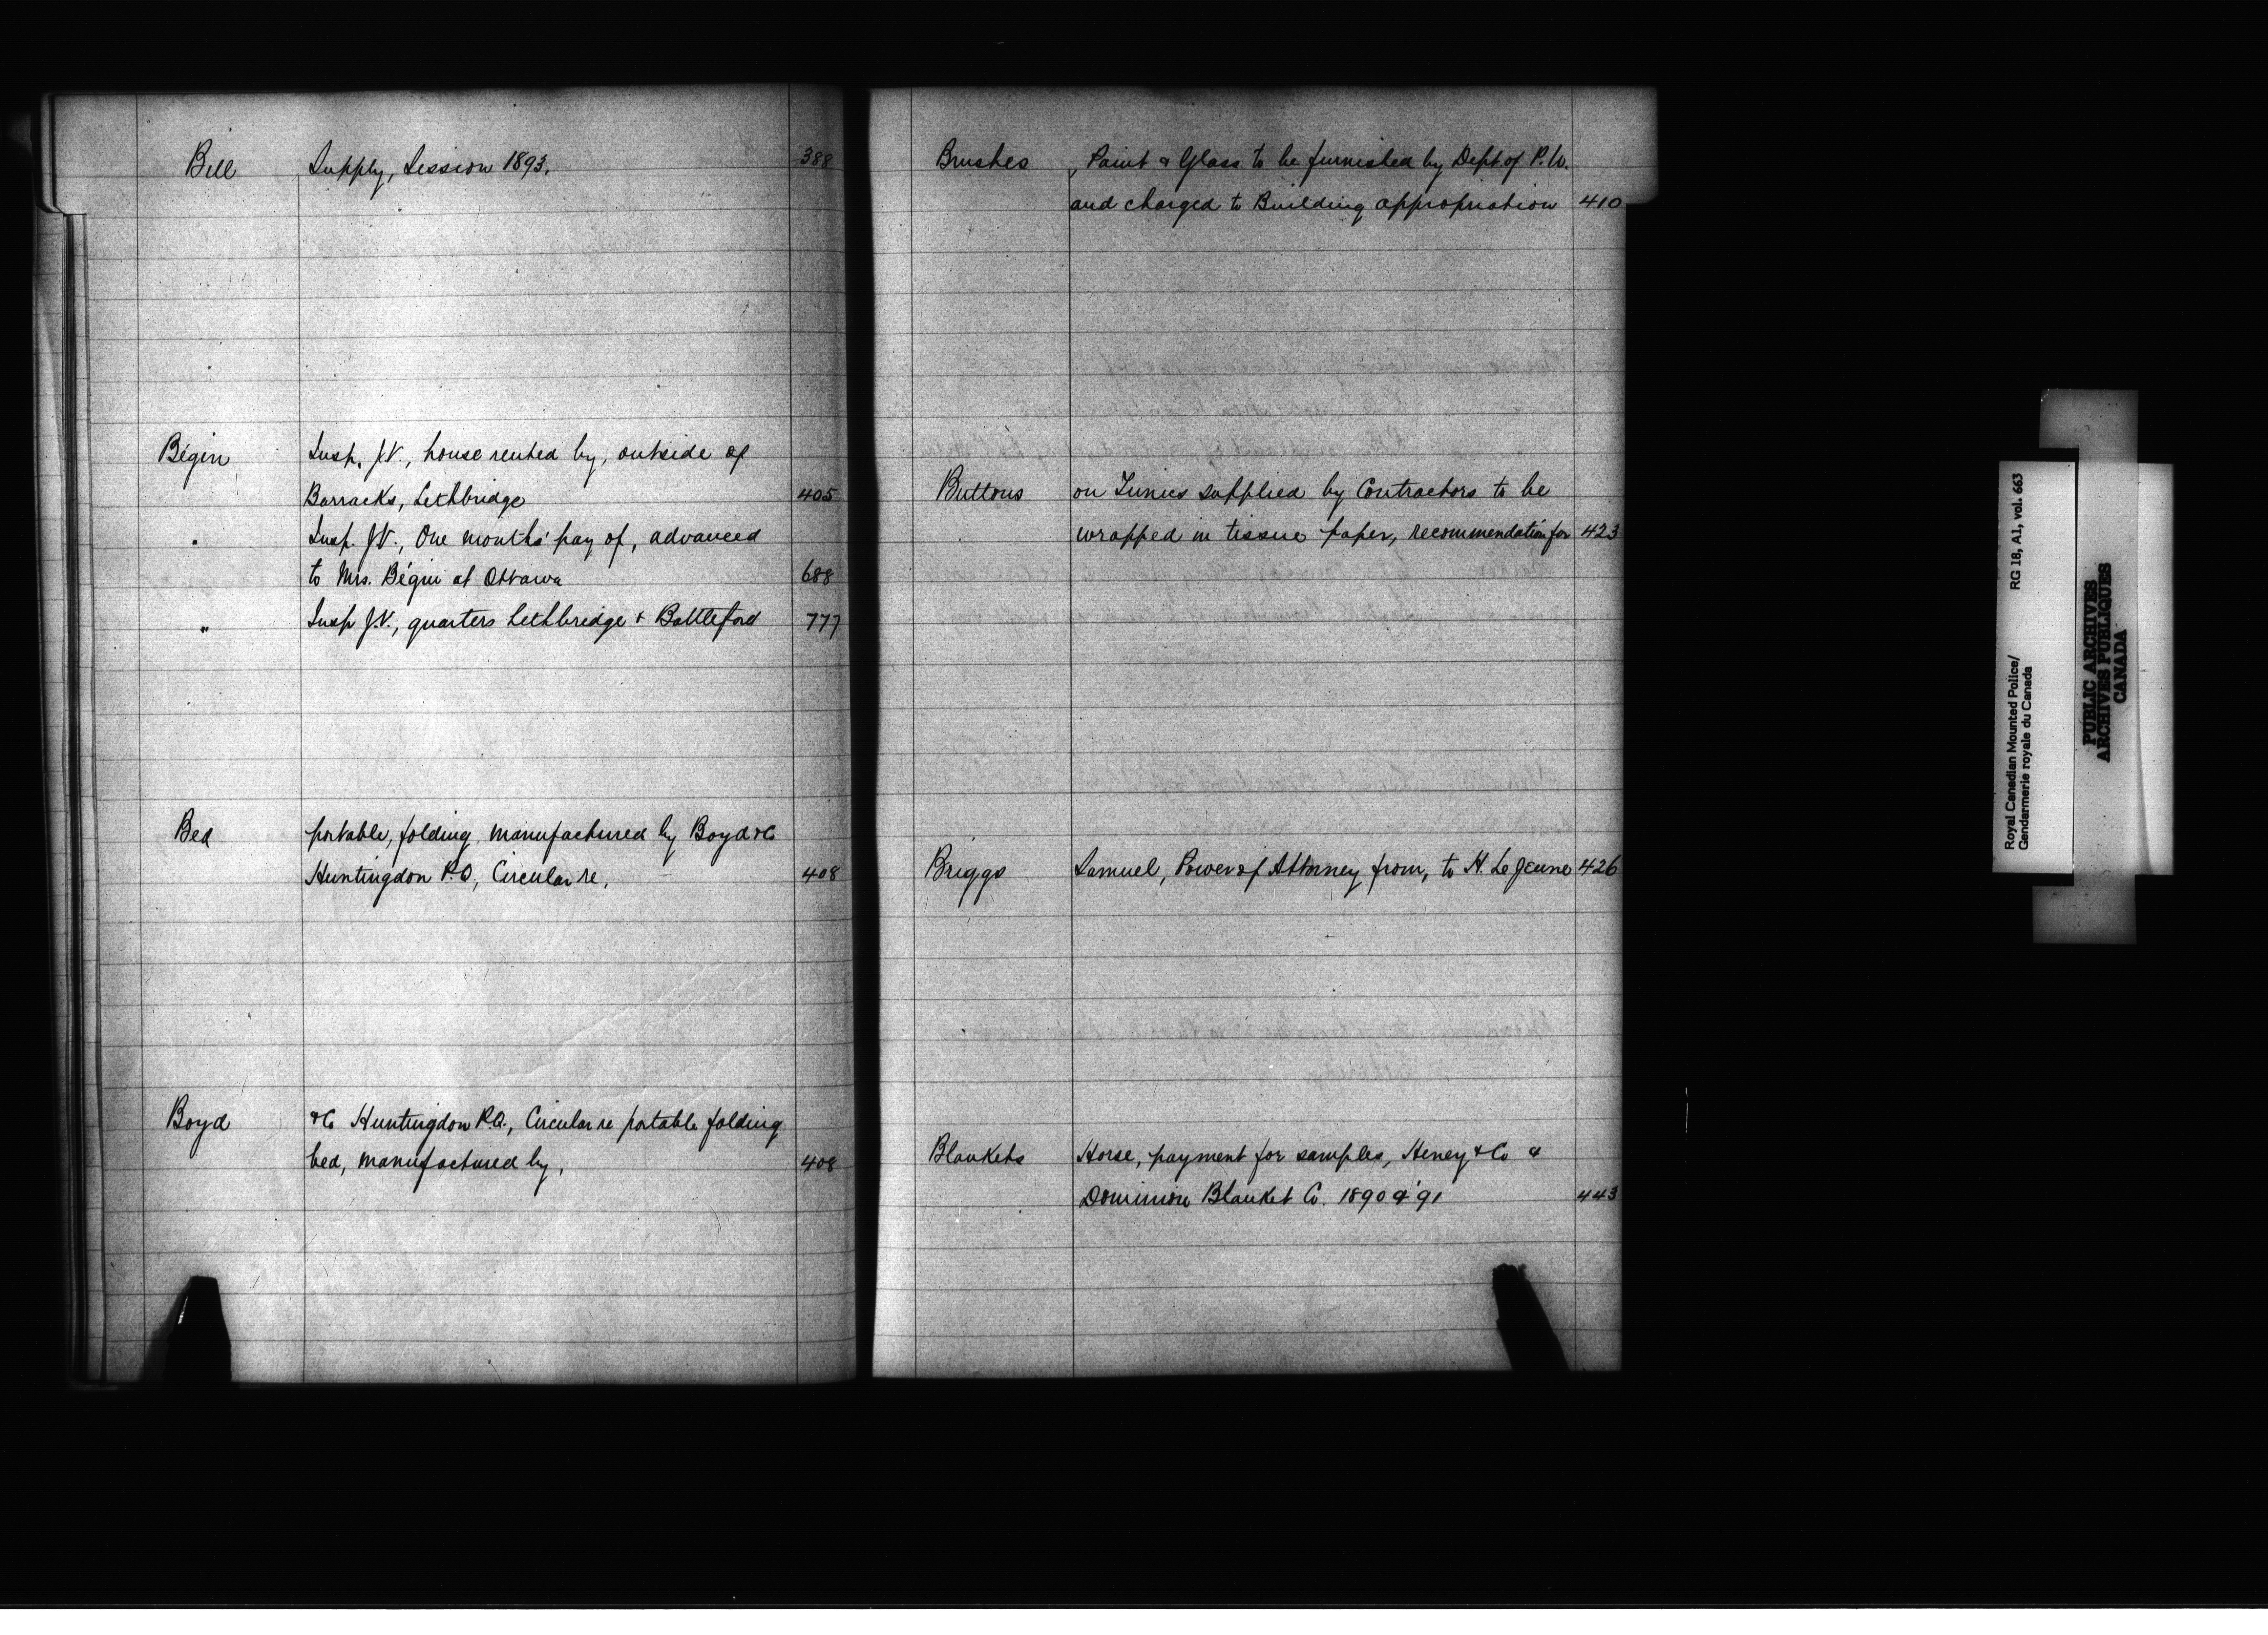 Bill Supply, Session 1893. 388
Bégin Insp. J.V., house rented by, outside of
Barracks, Lethbridge 405
" Insp. J.V., One months' pay of, advanced
to Mrs. Bégin at Ottawa 688
" Insp J.V., quarters Lethbridge & Battleford 777
Bed portable, folding, manufactured by Boyd & Co
Huntingdon P.Q., Circular re, 408
Boyd & Co Huntingdon P.Q., Circular re portable folding
bed, manufactured by, 408
Brushes , Paint & Glass to be furnished by Dept. of P.W.
and charged to Building appropriation 410
Buttons on Tunics supplied by Contractors to be
wrapped in tissue paper, recommendation for 423
Briggs Samuel, Power of Attorney from, to H. Le Jeune 426
Blankets Horse, payment for samples, Heney & Co &
Dominion Blanket Co. 1890 & '91 443
Royal Canadian Mounted Police/
Gendarmerie royale du Canada
RG 18, A1, vol. 663
PUBLIC ARCHIVES
ARCHIVES PUBLIQUES
CANADA